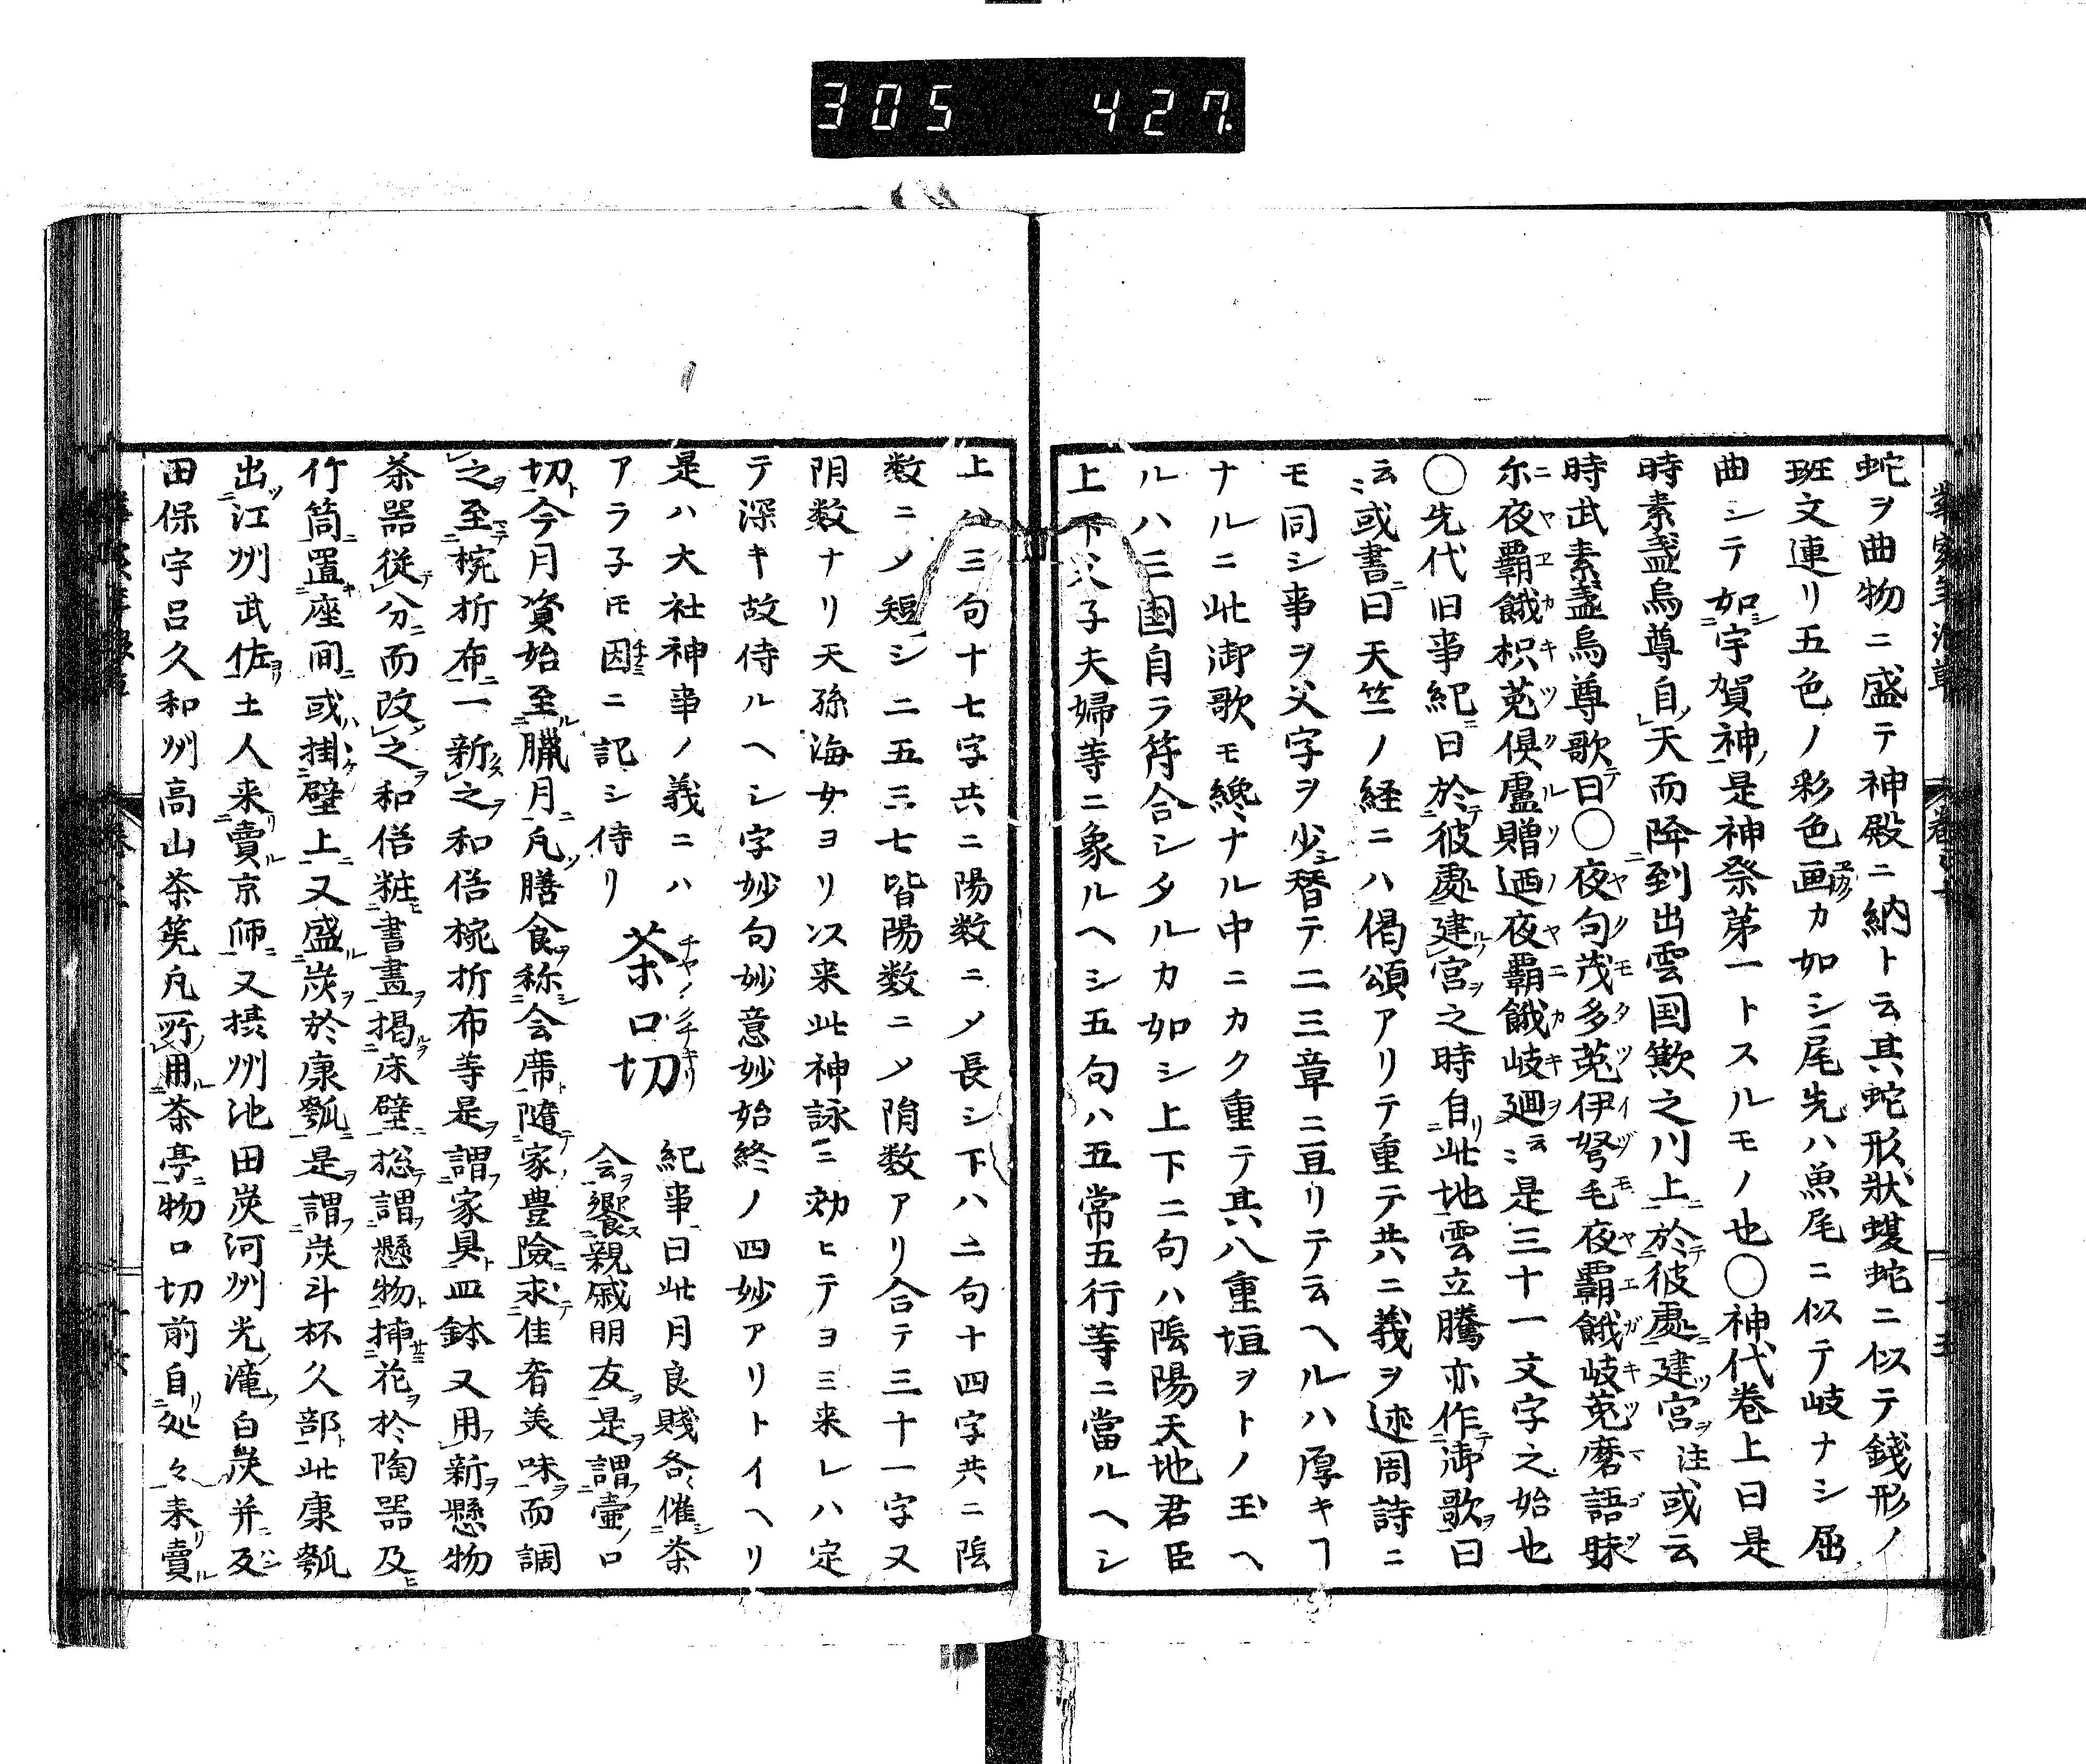 305 427
蛇ヲ曲物ニ盛テ神殿ニ納ト云其蛇形狀蝮蛇ニ似テ錢形ノ
斑文連リ五色ノ彩色画カ如シ尾先ハ魚尾ニ似テ岐ナシ屈
曲シテ如宇賀神是神祭第一トスルモノ也○神代巻上曰是
時素盞烏尊自天而降到出雲国簸之川上於彼處建宮注或云
時武素盞烏尊歌曰○夜句茂多菟伊弩毛夜覇餓岐菟磨語昧
尓夜覇餓枳菟倶盧贈廼夜覇餓岐廻云〻是三十一文字之始也
○先代旧事紀曰於彼處建宮之時自此地雲立騰亦作御歌曰
云〻或書曰天竺ノ経ニハ偈頌アリテ重テ共ニ義ヲ述周詩ニ
モ同シ事ヲ父字ヲ少替テ二三章ニ亘リテ云ヘルハ厚キヿ
ナルニ此御歌モ纔ナル中ニカク重テ其八重垣ヲトノ玉ヘ
ルハ三国自ラ符合シタルカ如シ上下二句ハ陰陽天地君臣
上下父子夫婦等ニ象ルヘシ五句ハ五常五行等ニ當ルヘシ
上ハ三句十七字共ニ陽数ニメ長シ下ハ二句十四字共ニ陰
数ニメ短シ二五三七皆陽数ニメ陰数アリ合テ三十一字又
陰数ナリ天孫海女ヨリ以来此神詠ニ効ヒテヨミ来レハ定
テ深キ故侍ルヘシ字妙句妙意妙始終ノ四妙アリトイヘリ
是ハ大社神事ノ義ニハ
アラ子𪜈因ニ記シ侍リ
茶口切
紀事曰此月良賤各〻催茶
会饗親戚朋友是謂壷ノ口
切今月資始至臘月凡膳食称会席隨家豊險求佳肴美味而調
之至椀折布一新之和俗椀折布等是謂家具皿鉢又用新懸物
茶器従分而改之和俗粧書畫掲床壁捴謂懸物挿花於陶器及
竹筒置座间或掛壁上又盛炭於康瓠是謂炭斗杯久部此康瓠
出江州武佐土人来賣京師又摂州池田炭河州光滝白炭并及
田保宇呂久和州高山茶筅凡所用茶亭物口切前自処々来賣